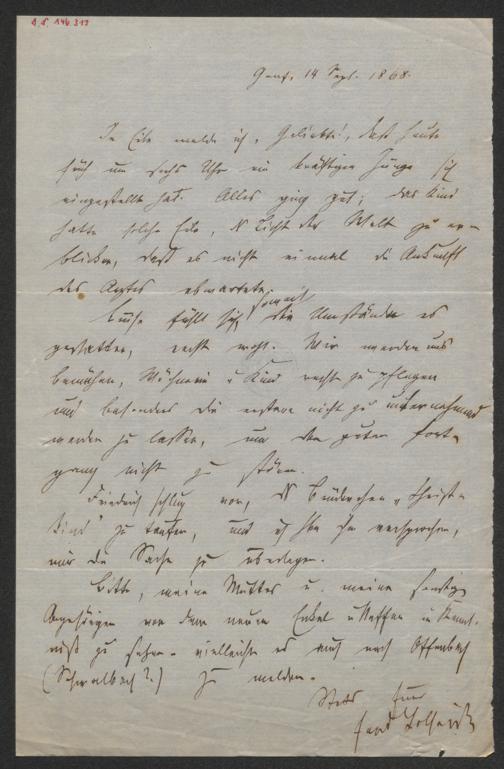 146.319
Genf, 14 Sept. 1868.
In Eile melde ich, Geliebte!, daß heute
früh um sechs Uhr ein kräftiger Junge sich
eingestellt hat. Alles ging gut; das Kind
hatte solche Eile, d. Licht der Welt zu er-
blicken, daß es nicht einmal die Ankunft
des Arztes abwartete.
Luise fühlt sich, soweit die Umstände es
gestatten, recht wohl. Wir werden uns
bemühen, Wöchnerin u. Kind recht zu pflegen
und besonders die erstere nicht zu unternehmend
werden zu lassen, um den guten Fort-
gang nicht zu stören.
Friedrich schlug vor, d. Brüderchen "Christ-
kind" zu taufen, und ich habe ihm versprochen,
mir die Sache zu überlegen.
Bitte, meine Mutter u. meine sonstigen
Angehörigen von dem neuen Enkel u Neffen in Kennt-
niß zu setzen - vielleicht es auch nach Offenbach
(Schwalbach?) zu melden.
Stets Euer